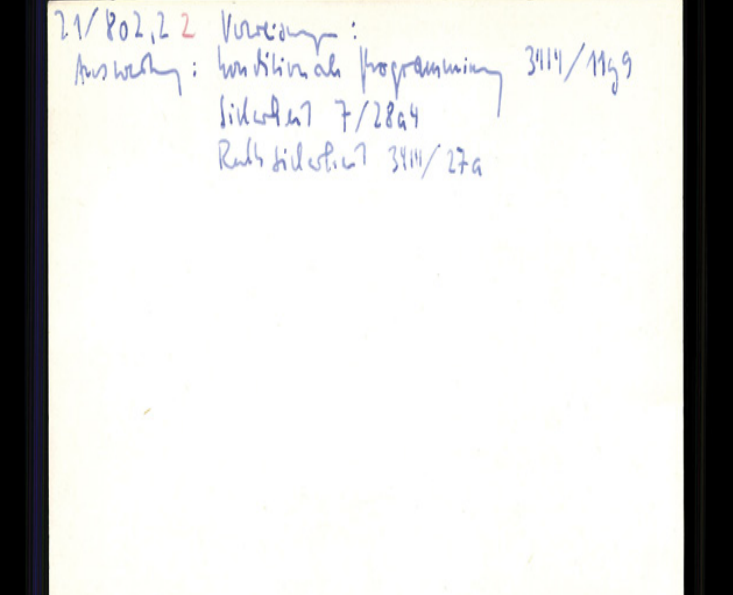 21/802,2 2 Verweisungen:
Auswertung: konditionale Programmierung 3414/11g9
Sicherheit 7/28a4
Rechtssicherheit 3411/27a